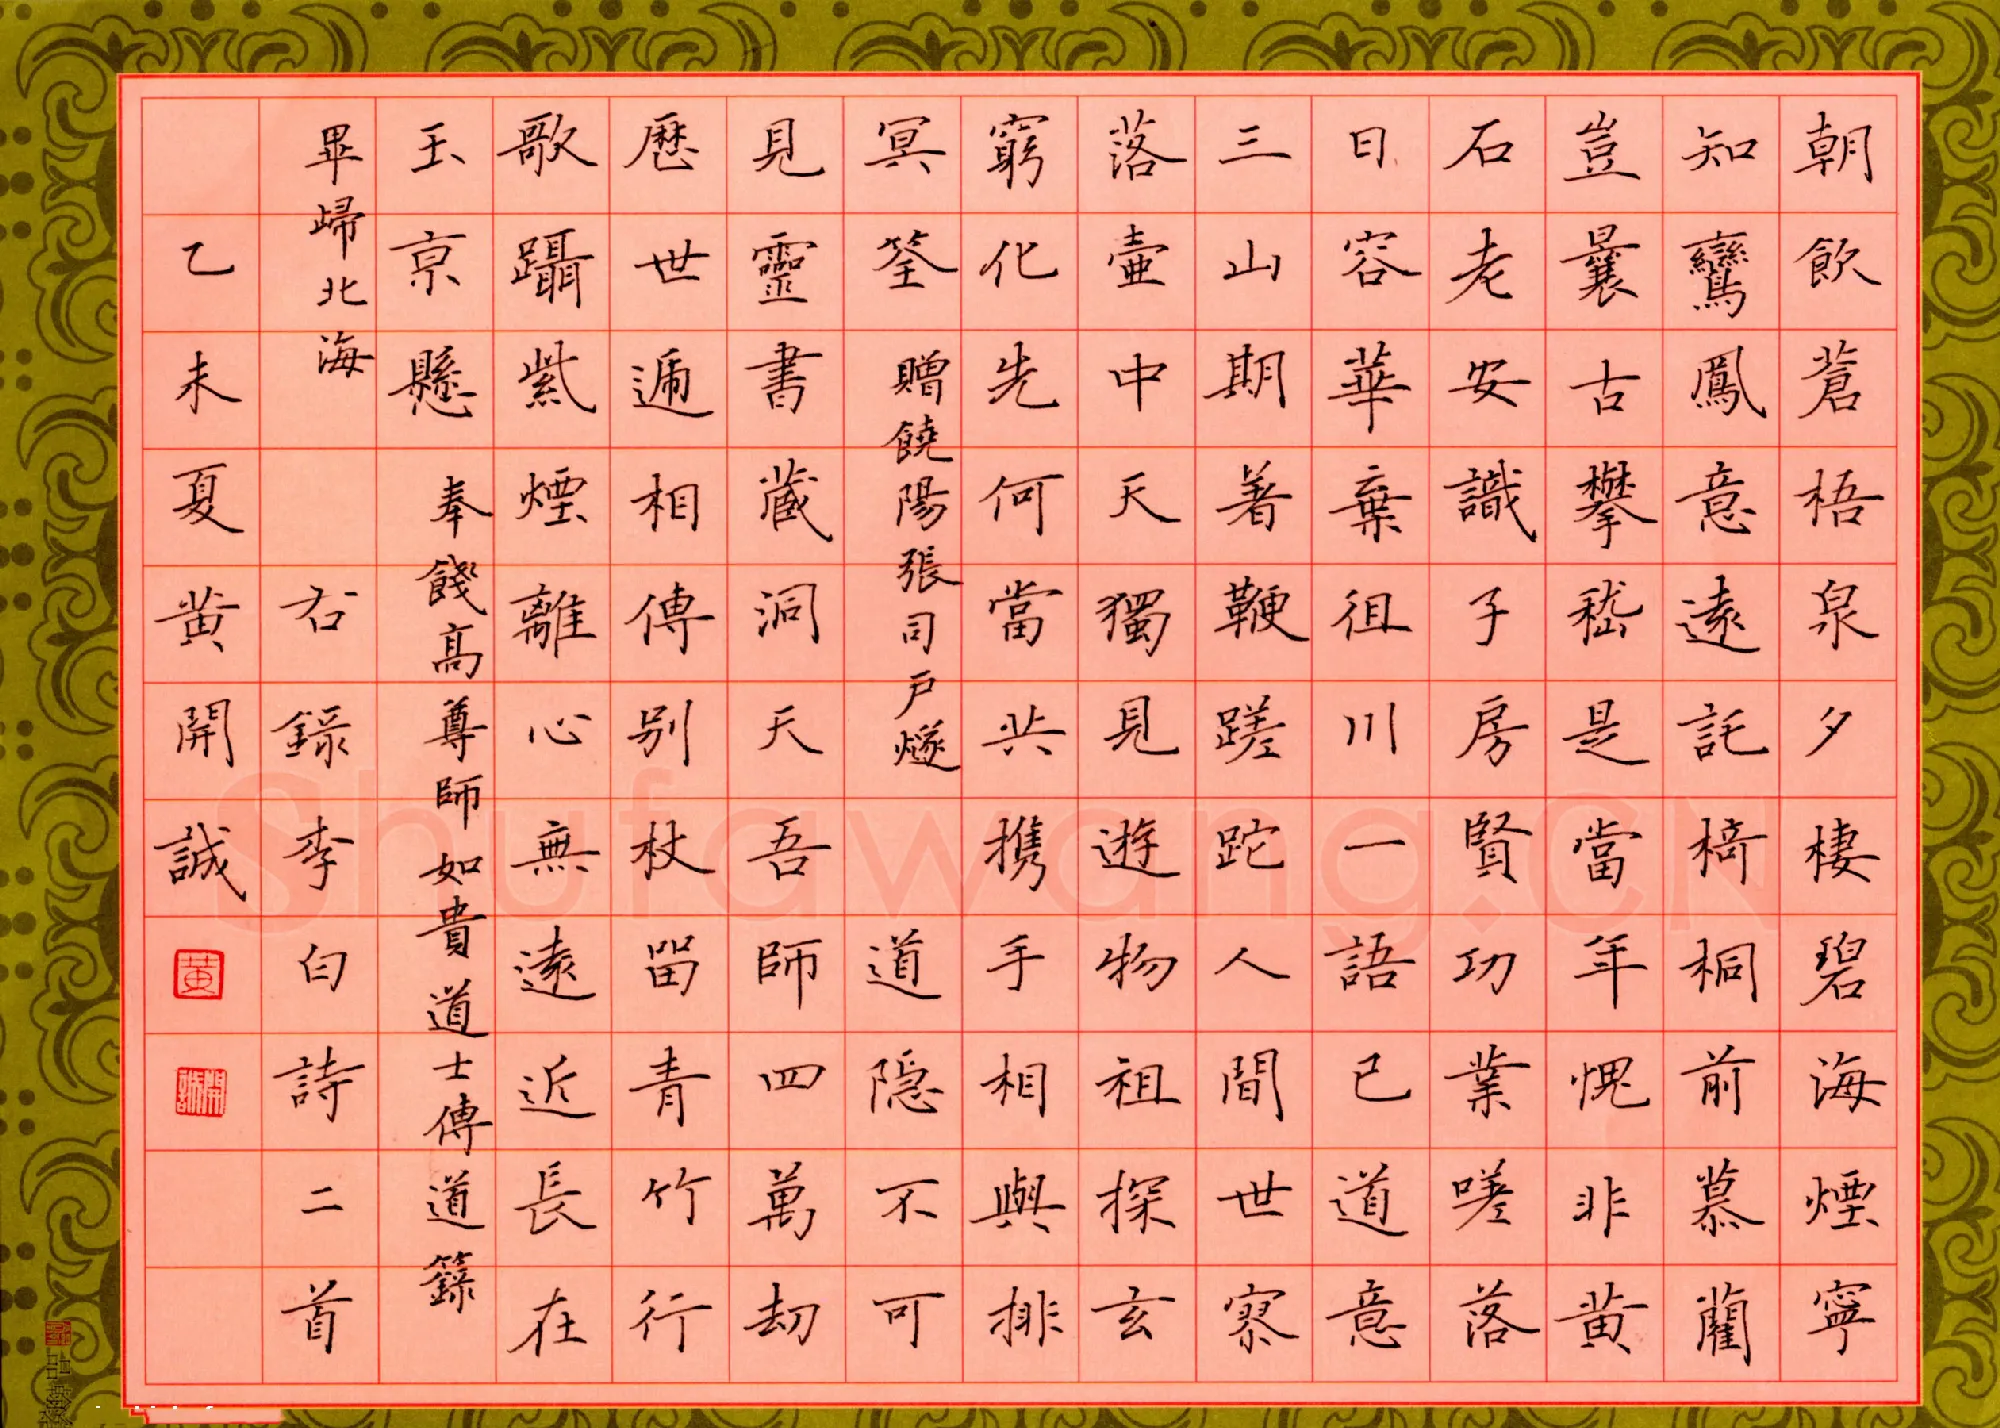 朝飲蒼梧泉夕棲碧海煙寧
知鸞鳳意遠託椅桐前慕藺
豈曩古攀嵇是當年愧非黄
石老安識子房賢功業嗟落
日容華棄徂川一語已道意
三山期著鞭蹉跎人間世寥
落壺中天獨見遊物祖探玄
窮化先何當共携手相與排
冥筌
贈饒陽張司戸燧
道隠不可
見靈書藏洞天吾師四萬劫
歷世遞相傳别杖留青竹行
歌躡紫煙離心無遠近長在
玉京懸
奉餞高尊師如貴道士傳道籙
畢歸北海
右録李白詩二首
乙未夏黄開誠
黄
開誠
Shufawang.CN